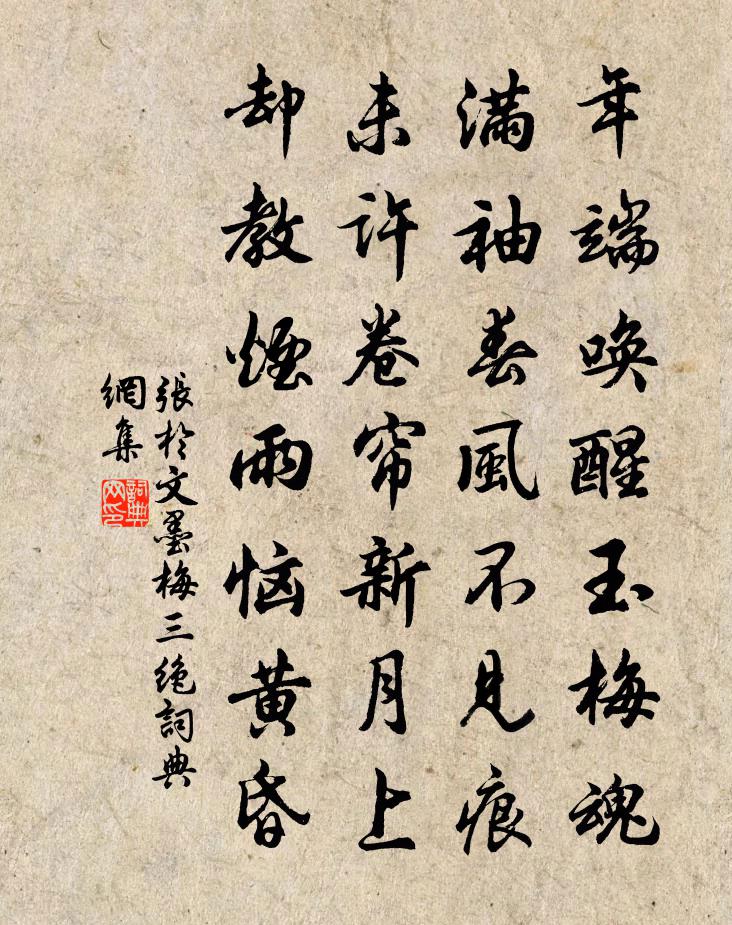 年端唤醒玉梅魂
满袖春風不见痕
未许卷帘新月上
却教煙雨恼黄昏
張於文墨梅三绝詞典
網集
詞典
网印